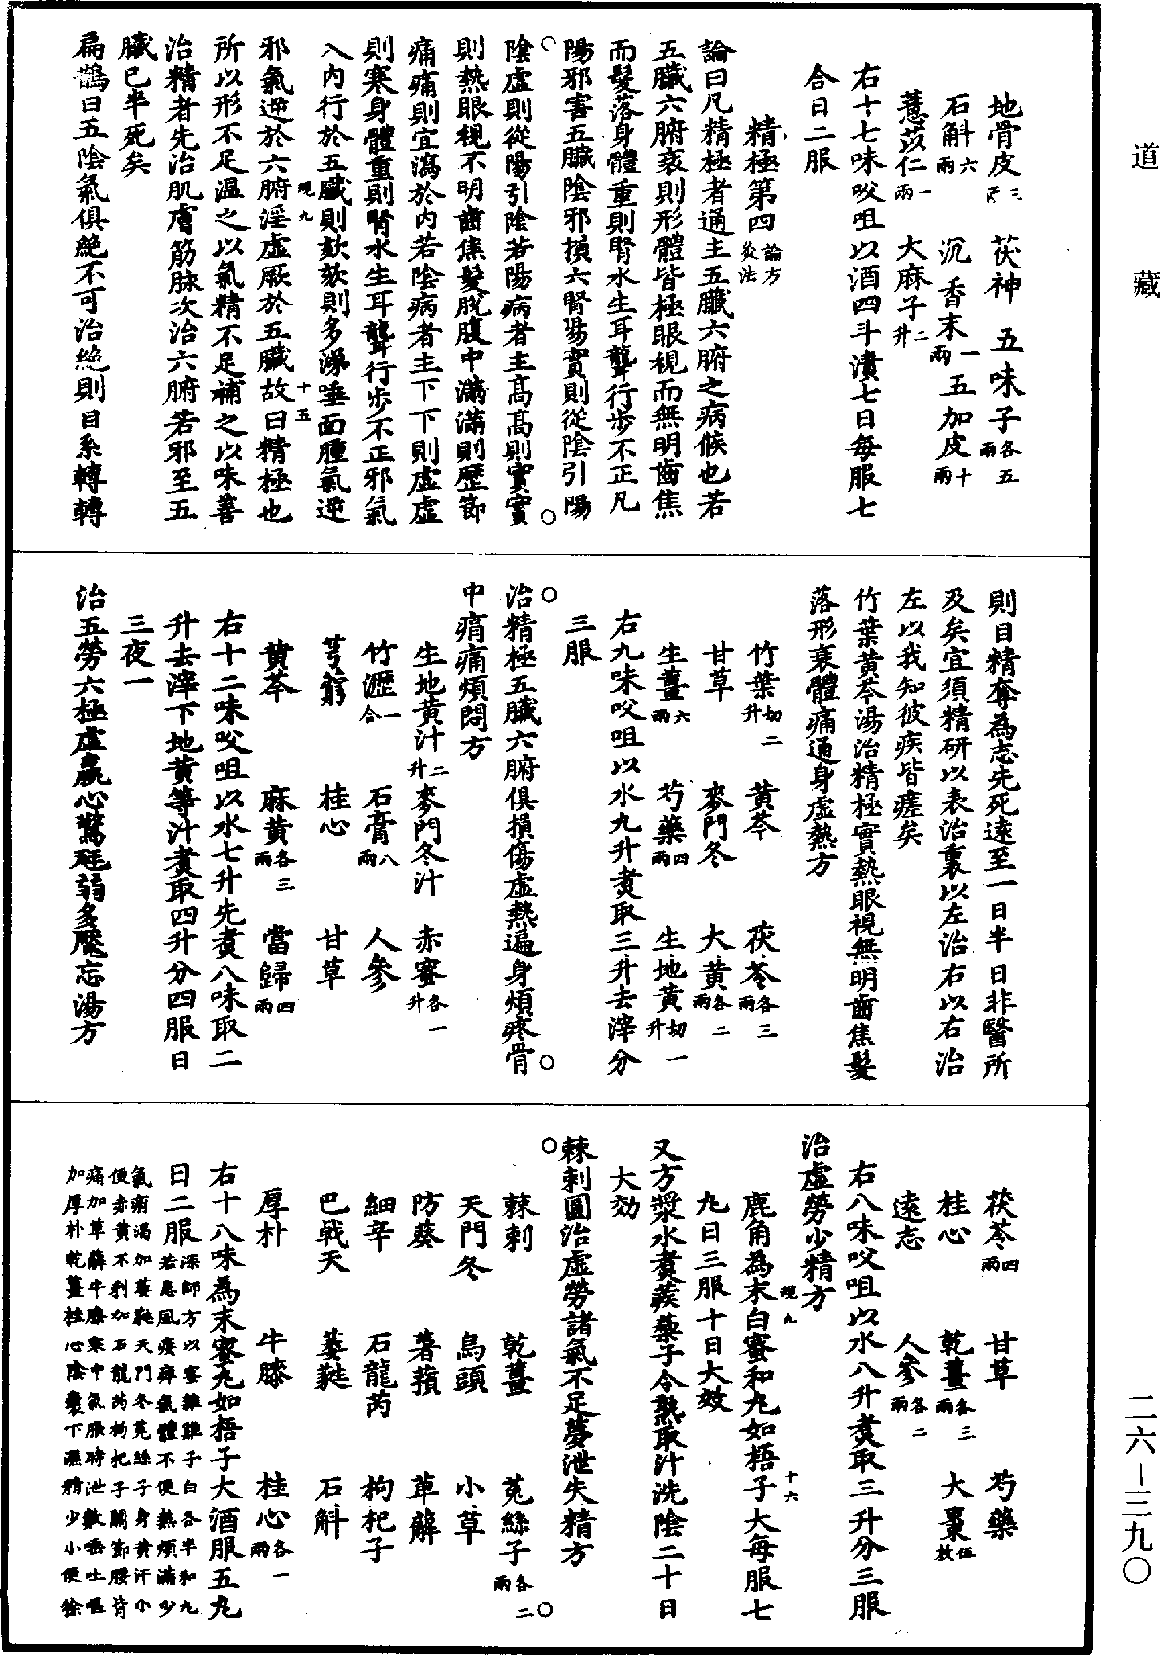 道藏
地骨皮三尺　茯神　五味子各五兩
石斛六兩　沉香末一兩　五加皮十兩
薏苡仁一兩　大麻子二升
右十七味㕮咀以酒四斗漬七日每服七
合日二服
精極第四論方灸法
論曰凡精極者通主五臟六腑之病候也若
五臟六腑衰則形體皆極眼視而無明齒焦
而髮落身體重則腎水生耳聾行步不正凡
陽邪害五臟陰邪損六腑陽實則從陰引陽
陰虛則從陽引陰若陽病者主高高則實實
則熱眼視不明齒焦髮脫腹中滿滿則歷節
痛痛則宜瀉於內若陰病者主下下則虛虛
則寒身體重則腎水生耳聾行步不正邪氣
入內行於五臟則欬欬則多涕唾面腫氣逆
邪氣逆於六腑淫虛厥於五臟故曰精極也
所以形不足溫之以氣精不足補之以味善
治精者先治肌膚筋脉次治六腑若邪至五
臟已半死矣
扁鵲曰五陰氣俱絕不可治絕則目系轉轉
規九
十五
則目精奪為志先死遠至一日半日非醫所
及矣宜須精研以表治裏以左治右以右治
左以我知彼疾皆瘥矣
竹葉黃芩湯治精極實熱眼視無明齒焦髮
落形衰體痛通身虛熱方
竹葉切二升　黃芩　茯苓各三兩
甘草　麥門冬　大黃各二兩
生薑六兩　芍藥四兩　生地黃切一升
右九味㕮咀以水九升煮取三升去滓分
三服
治精極五臟六腑俱損傷虛熱遍身煩疼骨
中痟痛煩悶方
生地黃汁二升　麥門冬汁　赤蜜各一升
竹瀝一合　石膏八兩　人參
芎藭　桂心　甘草
黃芩　麻黃各三兩　當歸四兩
右十二味㕮咀以水七升先煮八味取二
升去滓下地黃等汁煮取四升分四服日
三夜一
治五勞六極虛羸心驚尪弱多魘忘湯方
茯苓四兩　甘草　芍藥
桂心　乾薑各三兩　大棗伍枚
遠志　人參各二兩
右八味㕮咀以水八升煮取三升分三服
治虛勞少精方
鹿角為末白蜜和丸如梧子大每服七
丸日三服十日大效
規九
十六
又方漿水煮蒺藜子令熟取汁洗陰二十日
大効
棘刺圓治虛勞諸氣不足夢泄失精方
棘刺　乾薑　菟絲子各二兩
天門冬　烏頭　小草
防葵　薯蕷　萆薢
細辛　石龍芮　枸杞子
巴戟天　葳蕤　石斛
厚朴　牛膝　桂心各一兩
右十八味為末蜜丸如梧子大酒服五丸
日二服深師方以蜜雜雞子白各半和丸若患風痿痹氣體不便熱煩滿少
氣痟渴加葳蕤天門冬菟絲子身黃汗小便赤黃不利加石龍芮枸杞子關節腰背
痛加萆薢牛膝寒中氣脹時泄數唾吐嘔加厚朴乾薑桂心陰囊下濕精少小便餘
二六—三九〇